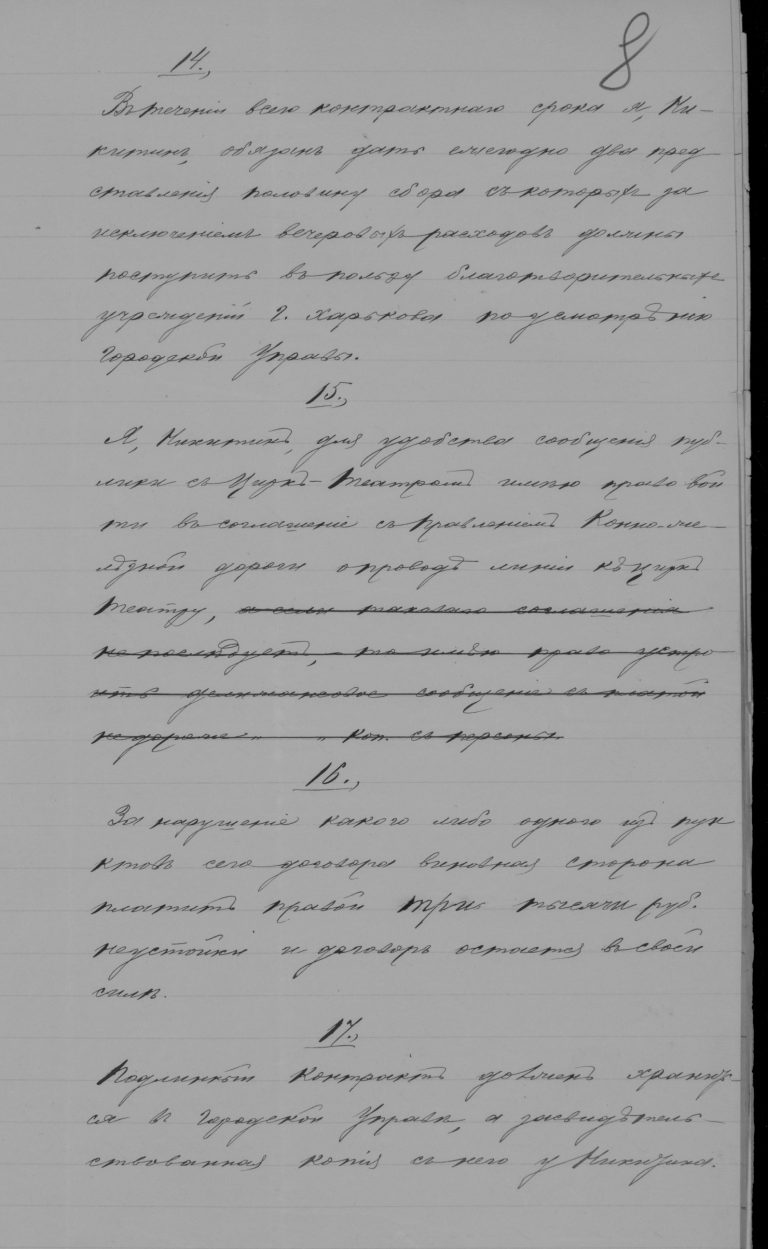 8
14.,
Въ теченіи всего контрактнаго срока я, Ни-
китинъ, обязанъ дать ежегодно два пред-
ставленія половину сбора съ которыхъ за
исключеніемъ вечеровыхъ расходовъ должны
поступить въ пользу благотворительныхъ
учрежденій г. Харькова по усмотрѣнію
Городской Управы.
15.,
Я, Никитинъ, для удобства сообщенія пуб-
лики съ Циркъ-Театромъ имѣю право вой
ти въ соглашеніе съ Правленіемъ Конно-же-
лѣзной дороги о проводѣ линіи къ циркъ
театру, а если таковаго соглашенія
не послѣдуетъ, - то имѣю право устро
ить дилижансовое сообщеніе съ платой
не дороже " " коп. съ персоны.
16.,
За нарушеніе какого либо одного изъ пун
ктовъ сего договора виновная сторона
платитъ правой три тысячи руб.
неустойки и договоръ остается въ своей
силѣ.
17.,
Подлинный контрактъ долженъ хранить-
ся въ Городской Управѣ, а засвидѣтель-
ствованная копія съ него у Никитина.